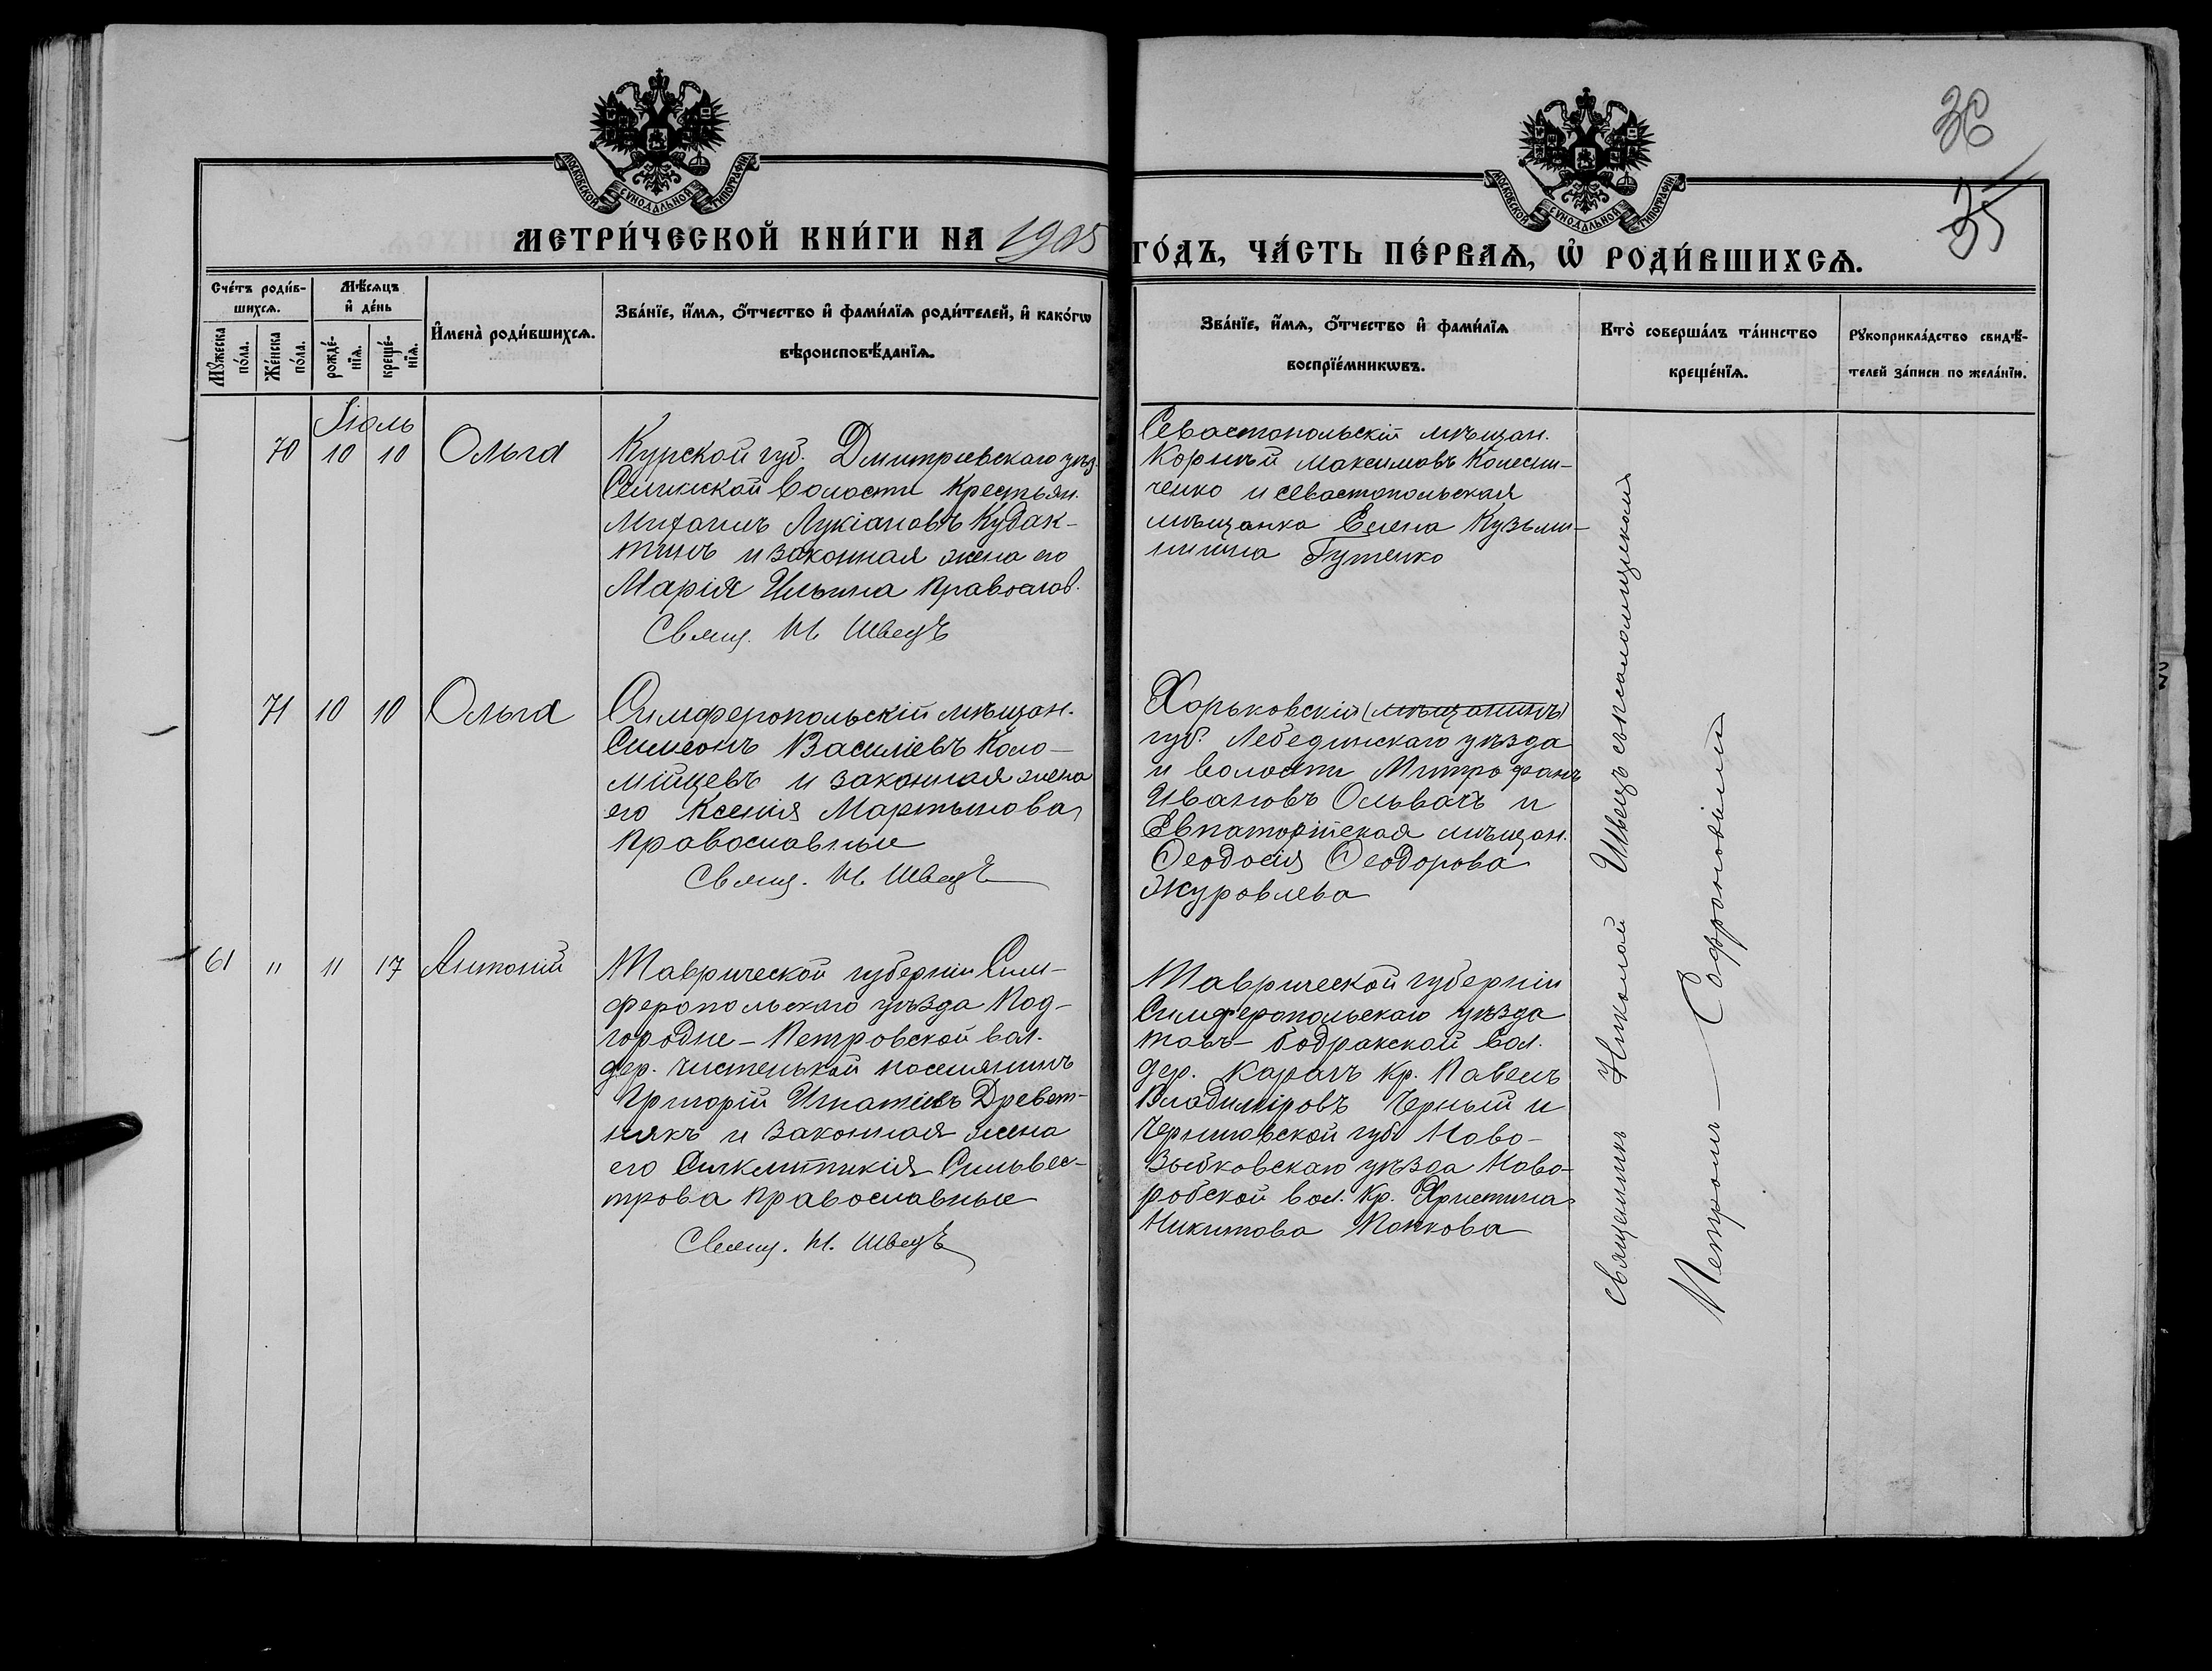 36
35
МОСКОВСКОЙ СѴНОДАЛЬНОЙ ТИПОГРАФІИ
МОСКОВСКОЙ СѴНОДАЛЬНОЙ ТИПОГРАФІИ
МЕТРИ́ЧЕСКОЙ КНИ́ГИ НА 1905 ГО́ДЪ, ЧА́СТЬ ПЕ́РВАѦ, Ѡ РОДИ́ВШИХСѦ.
Сче́тъ роди́в-
шихсѧ.
Мꙋжеска по́ла.
Же́нска по́ла.
Мѣ́сѧцъ
и҆ де́нь
рожде́-
нїѧ.
креще́-
нїѧ.
И҆мена̀ роди́вшихсѧ.
Зва́нїе, и҆́мѧ, ѻ҆́тчество и҆ фами́лїѧ роди́телей, и҆ како́гѡ
вѣроисповѣ́данїѧ.
Зва́нїе, и҆́мѧ, ѻ҆́тчество и҆ фами́лїѧ
воспрїе́мникѡвъ.
Кто̀ соверша́лъ та́инство
креще́нїѧ.
Рꙋкоприкла́дство свидѣ́-
телей за́писи по жела́нїю.
Іюль
70 10 10 Ольга
Курской губ. Дмитріевскаго уѣз.
волости Крестьян.
Михаилъ Лукіановъ Кудак-
тинъ и законная жена его
Марія Ильина Православ.
Свящ. Н. Швецъ
Севастопольскій мѣщан.
Корнилій Максимовъ Колесни-
ченко и севастопольская
мѣщанка Елена Кузьми-
нична Гутенко
71 10 10 Ольга
Симферопольскій мѣщан.
Симеонъ Василіевъ Коло-
мійцевъ и законная жена
его Ксенія Мартынова
православные
Свящ. Н. Швецъ
Харьковскій (мѣщанинъ)
губ. Лебединскаго уѣзда
и волости Митрофанъ
Ивановъ Ольвачъ и
Евпаторійская мѣщан.
Ѳеодосія Ѳеодорова
Журавлева
61 " 11 17 Антоній
Таврической губерніи Сим-
феропольскаго уѣзда Под-
городне-Петровской вол.
дер. Чистенькой поселянинъ
Григорій Игнатіевъ Древет-
някъ и законная жена
его Сигклитикія Сильвес-
трова православные
Свящ. Н. Швецъ
Таврической губерніи
Симферопольскаго уѣзда
Тавъ-бодракской вол.
дер. Карачъ кр. Павелъ
Владиміровъ Черный и
Черниговской губ. Ново-
зыбковскаго уѣзда Ново-
робской вол. кр. Христина
Никитова Попкова
Священникъ Николай Швецъ съ псаломщикомъ
Петромъ Софроновымъ